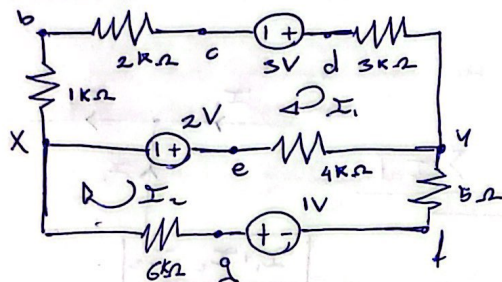 b 2KΩ c 3V d 3KΩ
1KΩ I₁
X 2V e 4KΩ y
I₂ 1V 5Ω
6KΩ g f